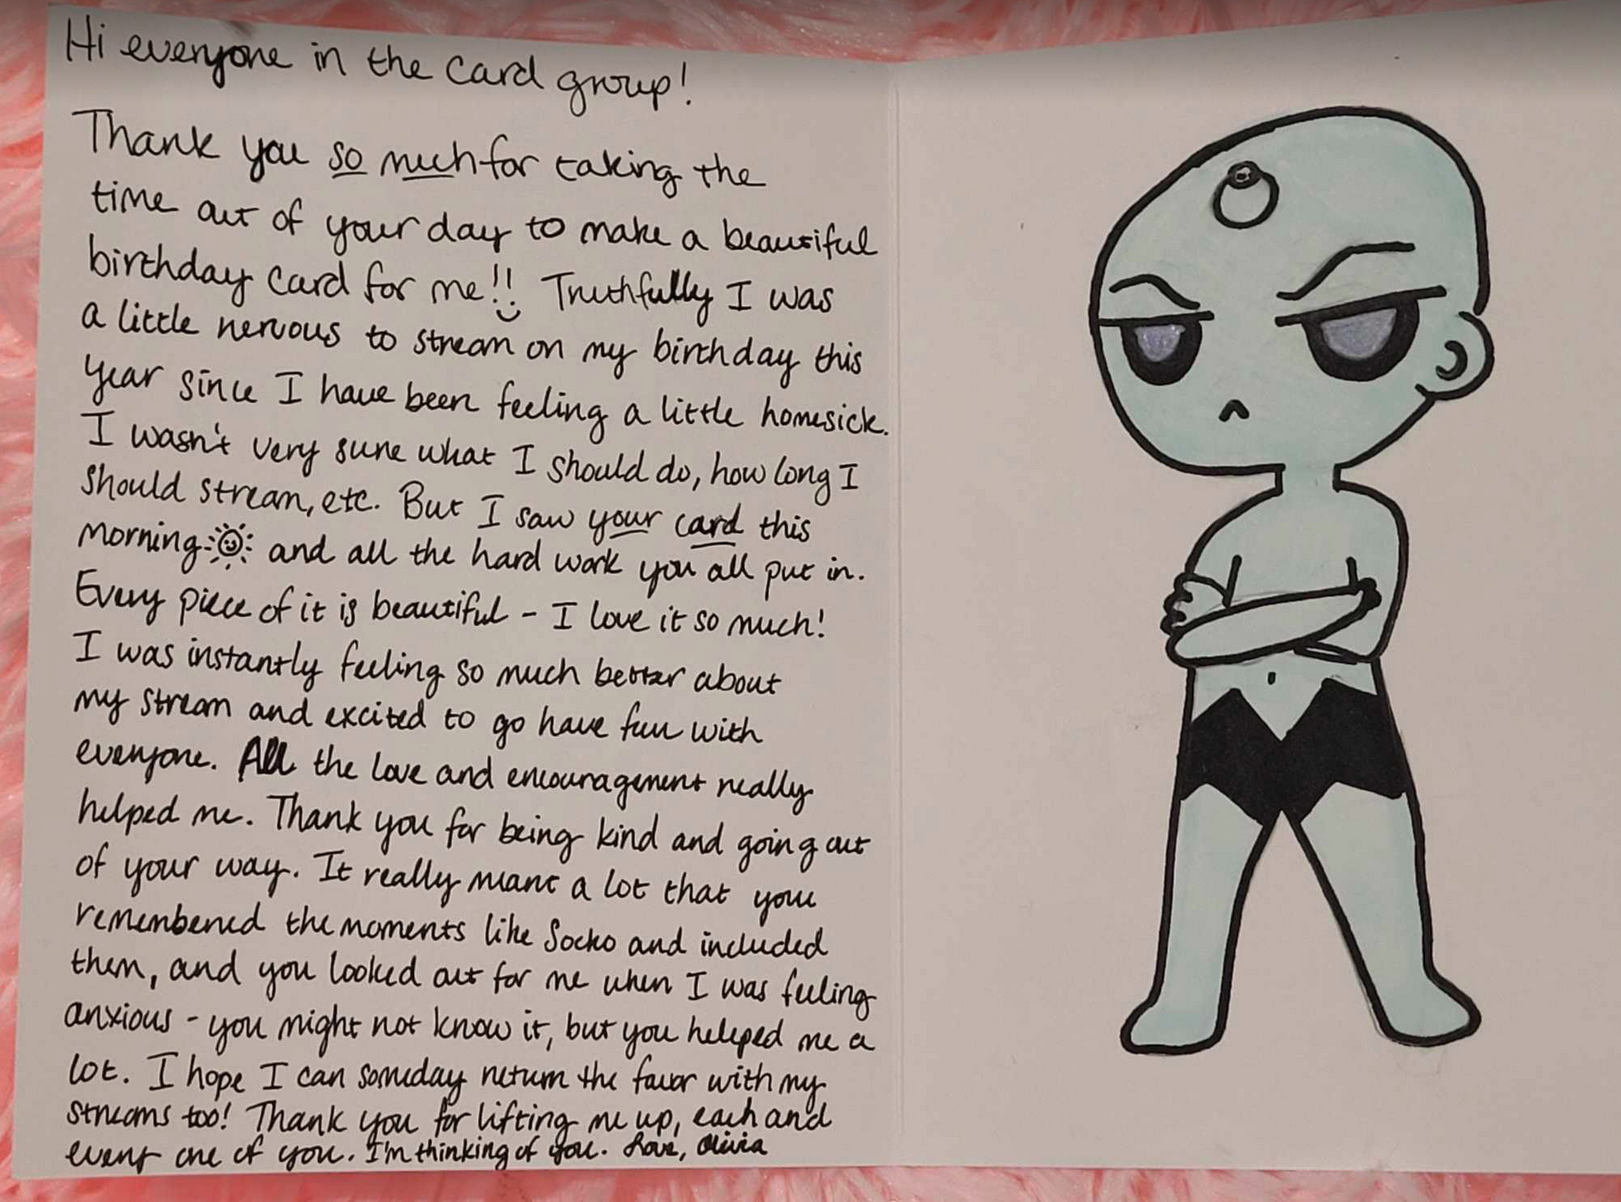 Hi everyone in the card group!
Thank you so much for taking the
time out of your day to make a beautiful
birthday card for me!! Truthfully I was
a little nervous to stream on my birthday this
year since I have been feeling a little homesick.
I wasn't very sure what I should do, how long I
should stream, etc. But I saw your card this
morning and all the hard work you all put in.
Every piece of it is beautiful - I love it so much!
I was instantly feeling so much better about
my stream and excited to go have fun with
everyone. All the love and encouragement really
helped me. Thank you for being kind and going out
of your way. It really meant a lot that you
remembered the moments like Socko and included
them, and you looked out for me when I was feeling
anxious - you might not know it, but you helped me a
lot. I hope I can someday return the favor with my
streams too! Thank you for lifting me up, each and
every one of you. I'm thinking of you. Love, Olivia